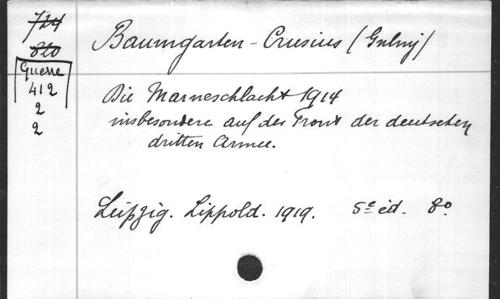 724
820
Guerre
412
2
2
Baumgarten-Crusius
Die Marneschlacht 1914
insbesondere auf der Front der deutschen
dritten Armee.
Leipzig. Lippold. 1919. 5e éd. 8o